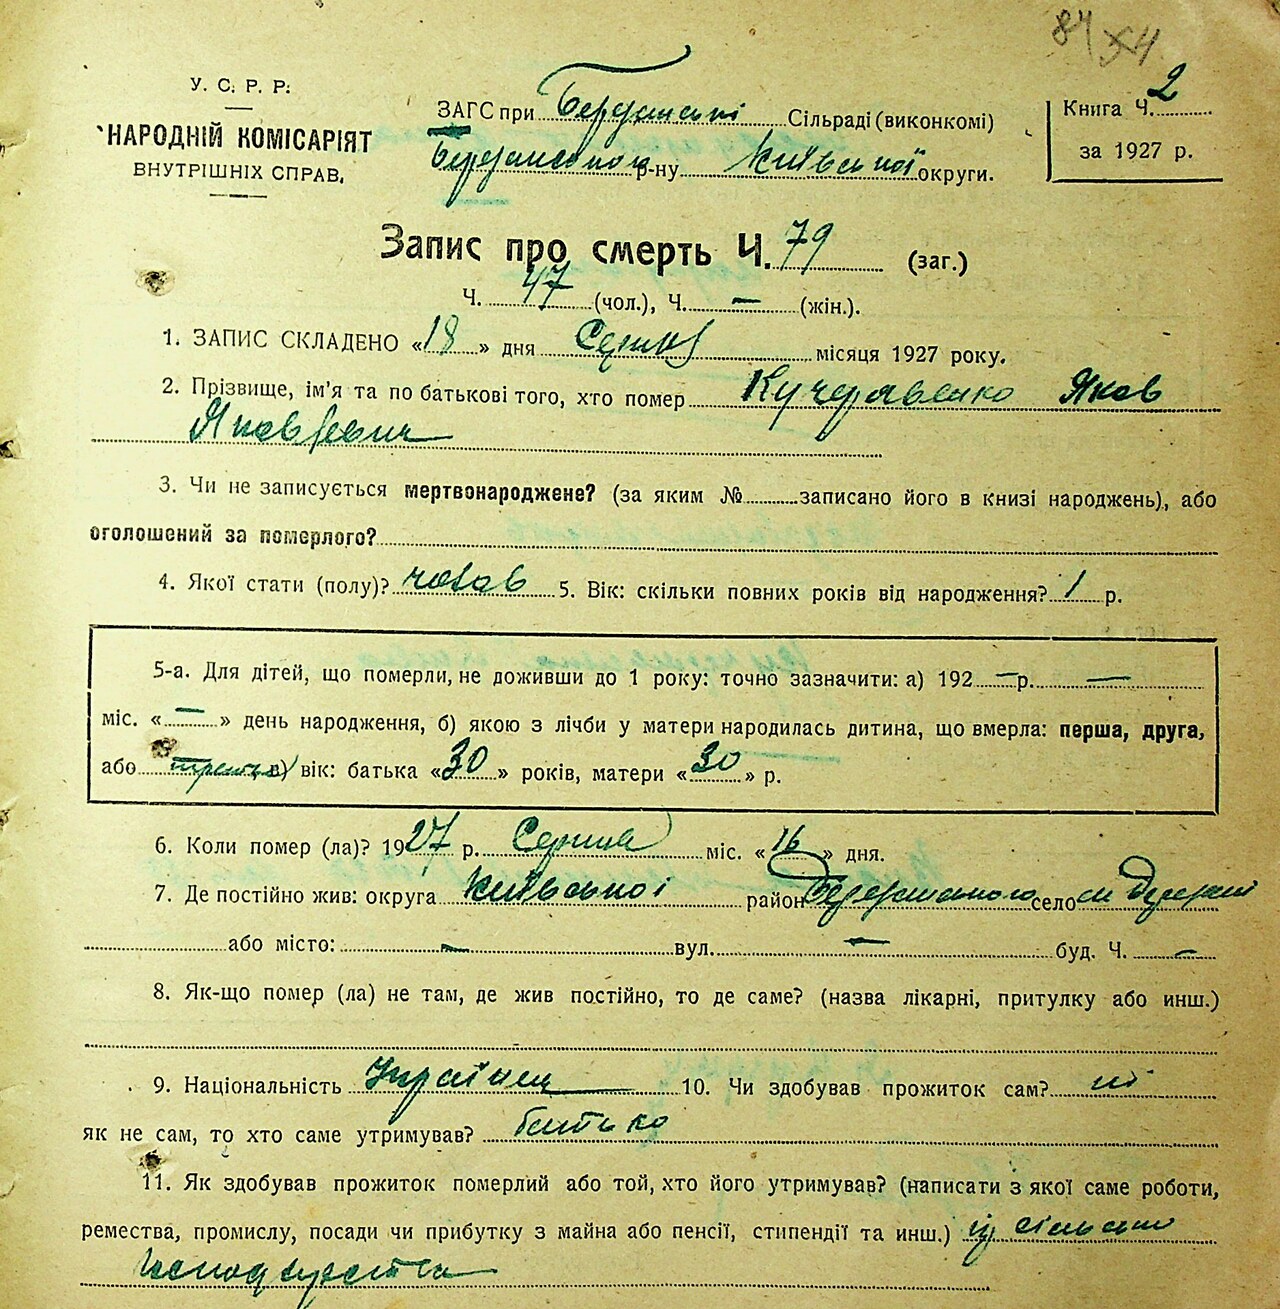 84
У. С. Р. Р.
НАРОДНІЙ КОМІСАРІЯТ
ВНУТРІШНІХ СПРАВ.
ЗАГС при Сільраді (виконкомі)
р-ну Київської округи.
Книга Ч. 2
за 1927 р.
Запис про смерть Ч. 79 (заг.)
Ч. 47 (чол.), Ч. — (жін.).
1. ЗАПИС СКЛАДЕНО «18» дня Серпня місяця 1927 року.
2. Прізвище, ім'я та по батькові того, хто помер Кучеравенко Яков
Яковлевич
3. Чи не записується мертвонароджене? (за яким № записано його в книзі народжень), або
оголошений за померлого?
4. Якої стати (полу)? чолов 5. Вік: скільки повних років від народження? 1 р.
5-а. Для дітей, що померли, не доживши до 1 року: точно зазначити: а) 192 — р. —
міс. « — » день народження, б) якою з лічби у матери народилась дитина, що вмерла: перша, друга,
або третя в) вік: батька «30» років, матери «30» р.
6. Коли помер (ла)? 1927 р. Серпня міс. «16» дня.
7. Де постійно жив: округа Київської район село
або місто: — вул. — буд. Ч. —
8. Як-що помер (ла) не там, де жив постійно, то де саме? (назва лікарні, притулку або инш.)
9. Національність Українец 10. Чи здобував прожиток сам? ні
як не сам, то хто саме утримував? батько
11. Як здобував прожиток померлий або той, хто його утримував? (написати з якої саме роботи,
ремества, промислу, посади чи прибутку з майна або пенсії, стипендії та инш.) із сільського
господарства